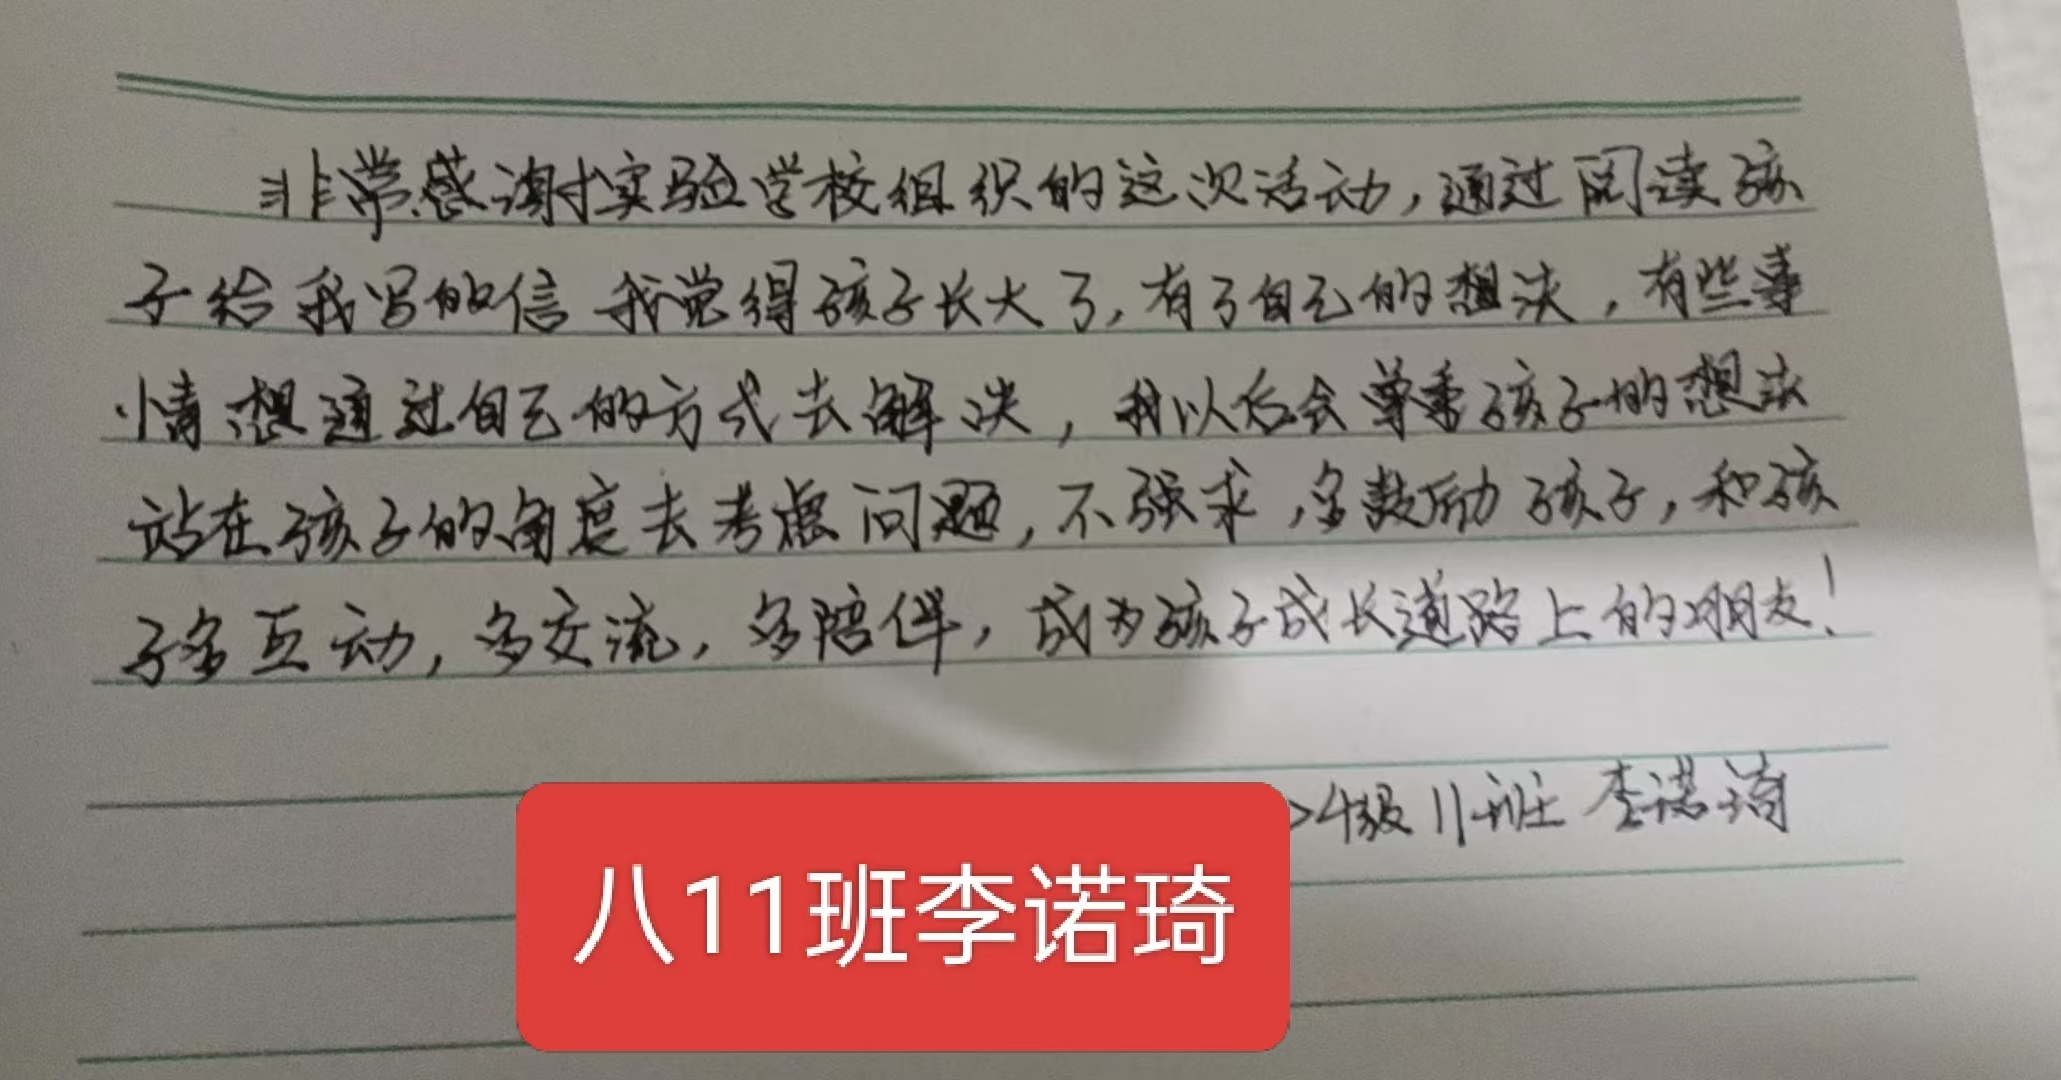 非常感谢实验学校组织的这次活动，通过阅读孩
子给我写的信我觉得孩子长大了，有了自己的想法，有些事
情想通过自己的方式去解决，我以后会尊重孩子的想法
站在孩子的角度去考虑问题，不强求，多鼓励孩子，和孩
子多互动，多交流，多陪伴，成为孩子成长道路上的朋友！
24级11班 李诺琦
八11班李诺琦